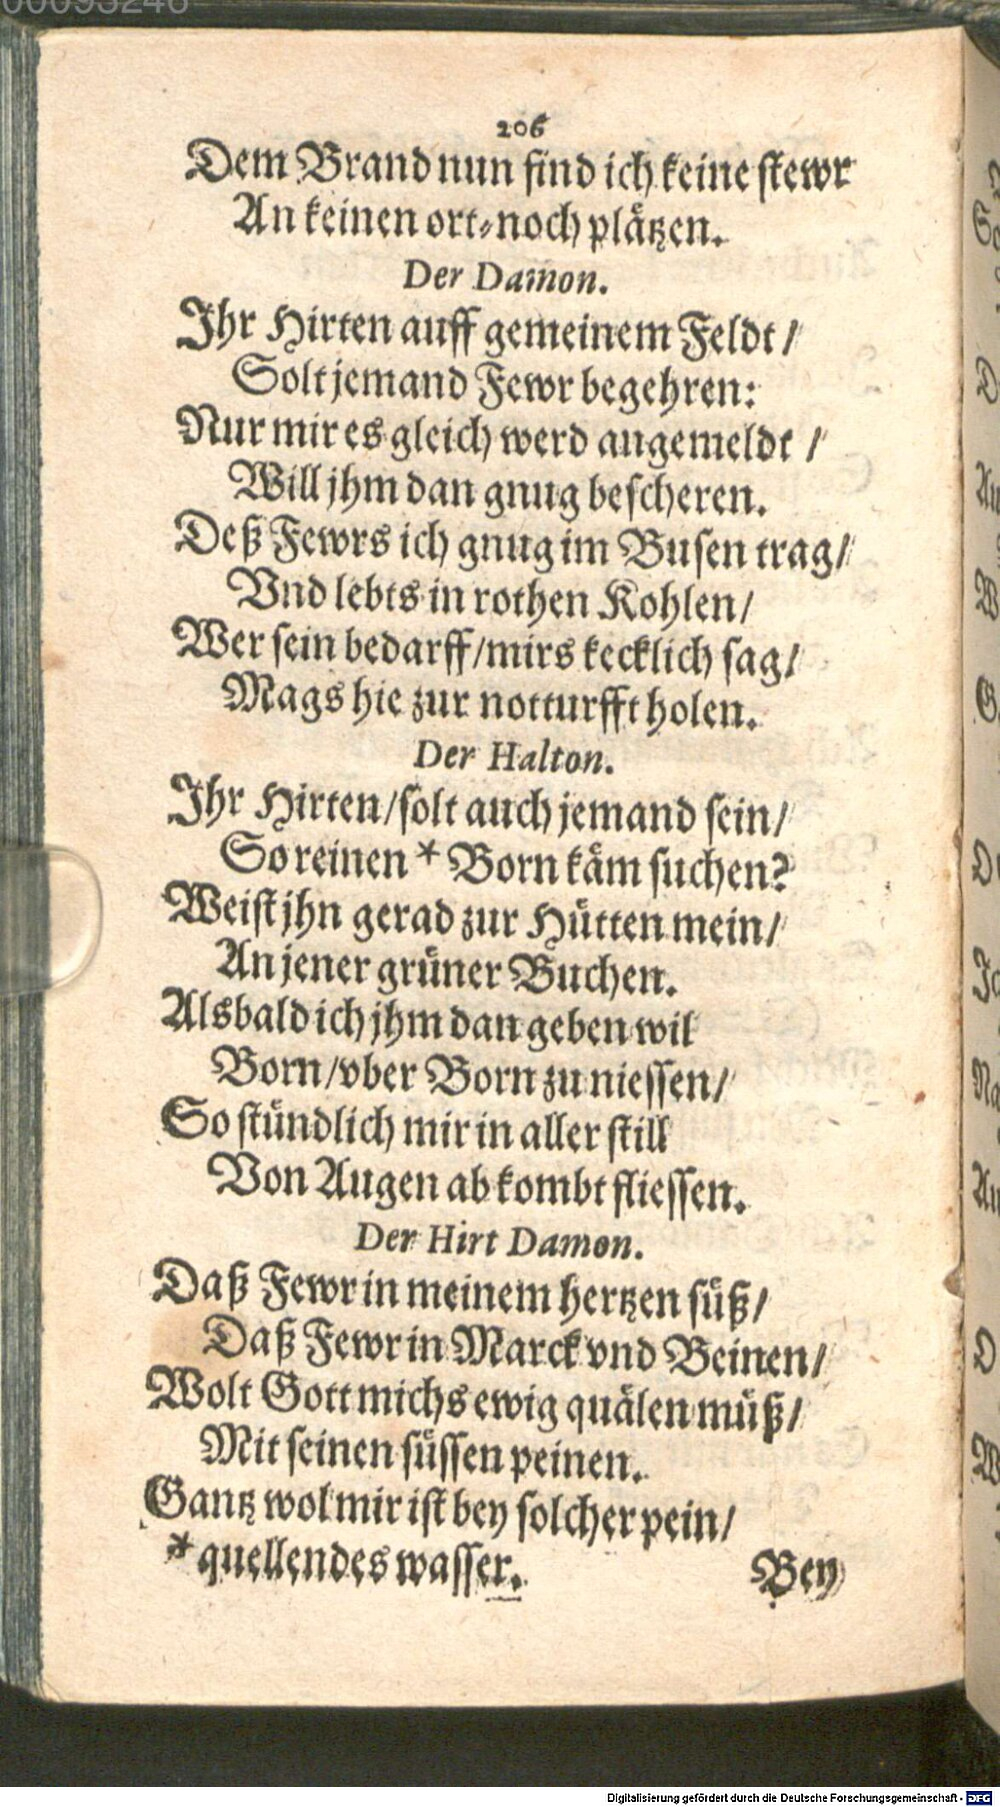 00093246
206
Dem Brand nun find ich keine stewr
An keinen ort-noch plätzen.
Der Damon.
Ihr Hirten auff gemeinem Feldt /
Solt jemand Fewr begehren:
Nur mir es gleich werd angemeldt /
Will jhm dan gnug bescheren.
Deß Fewrs ich gnug im Busen trag/
Vnd lebts in rothen Kohlen/
Wer sein bedarff/mirs kecklich sag/
Mags hie zur notturfft holen.
Der Halton.
Ihr Hirten/solt auch jemand sein/
So reinen * Born käm suchen?
Weist jhn gerad zur Hütten mein/
An jener grüner Buchen.
Alsbald ich jhm dan geben wil
Born/vber Born zu niessen/
So stündlich mir in aller still
Von Augen ab kombt fliessen.
Der Hirt Damon.
Daß Fewr in meinem hertzen süß/
Daß Fewr in Marck vnd Beinen/
Wolt Gott michs ewig quälen müß/
Mit seinen süssen peinen.
Gantz wol mir ist bey solcher pein/
* quellendes wasser. Bey
Digitalisierung gefördert durch die Deutsche Forschungsgemeinschaft - DFG